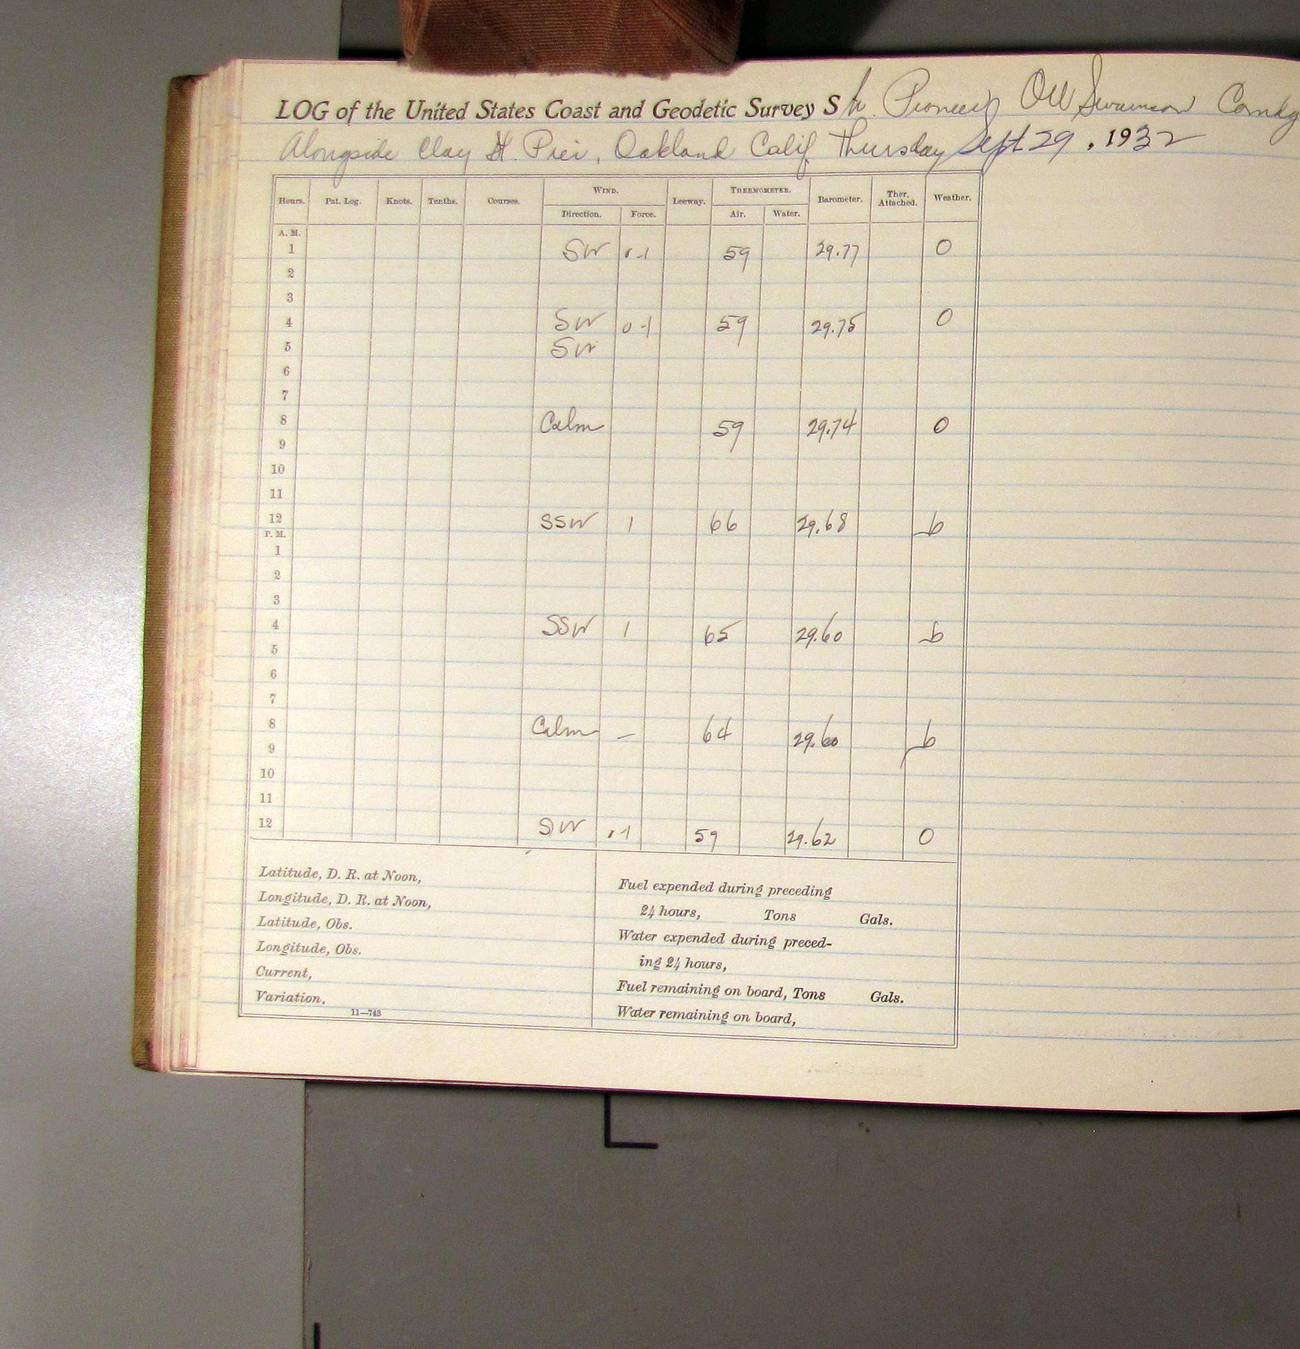 LOG of the United States Coast and Geodetic Survey Sh. Pioneer, O W Swainson Comdg
Alongside Clay St. Pier, Oakland Calif. Thursday Sept 29, 1932
Hours. Pat. Log. Knots. Tenths. Courses. WIND. Direction. Force. Leeway. THERMOMETER. Air. Water. Barometer. Ther. Attached. Weather.
A. M.
1 SW 0-1 59 29.77 0
2
3
4 SW 0-1 59 29.75 0
5 SW
6
7
8 Calm 59 29.74 0
9
10
11
12 SSW 1 66 29.68 b
P. M.
1
2
3
4 SSW 1 65 29.60 b
5
6
7
8 Calm — 64 29.60 b
9
10
11
12 SW 0-1 59 29.62 0
Latitude, D. R. at Noon,
Longitude, D. R. at Noon,
Latitude, Obs.
Longitude, Obs.
Current,
Variation.
11—743
Fuel expended during preceding
24 hours, Tons Gals.
Water expended during preced-
ing 24 hours,
Fuel remaining on board, Tons Gals.
Water remaining on board,